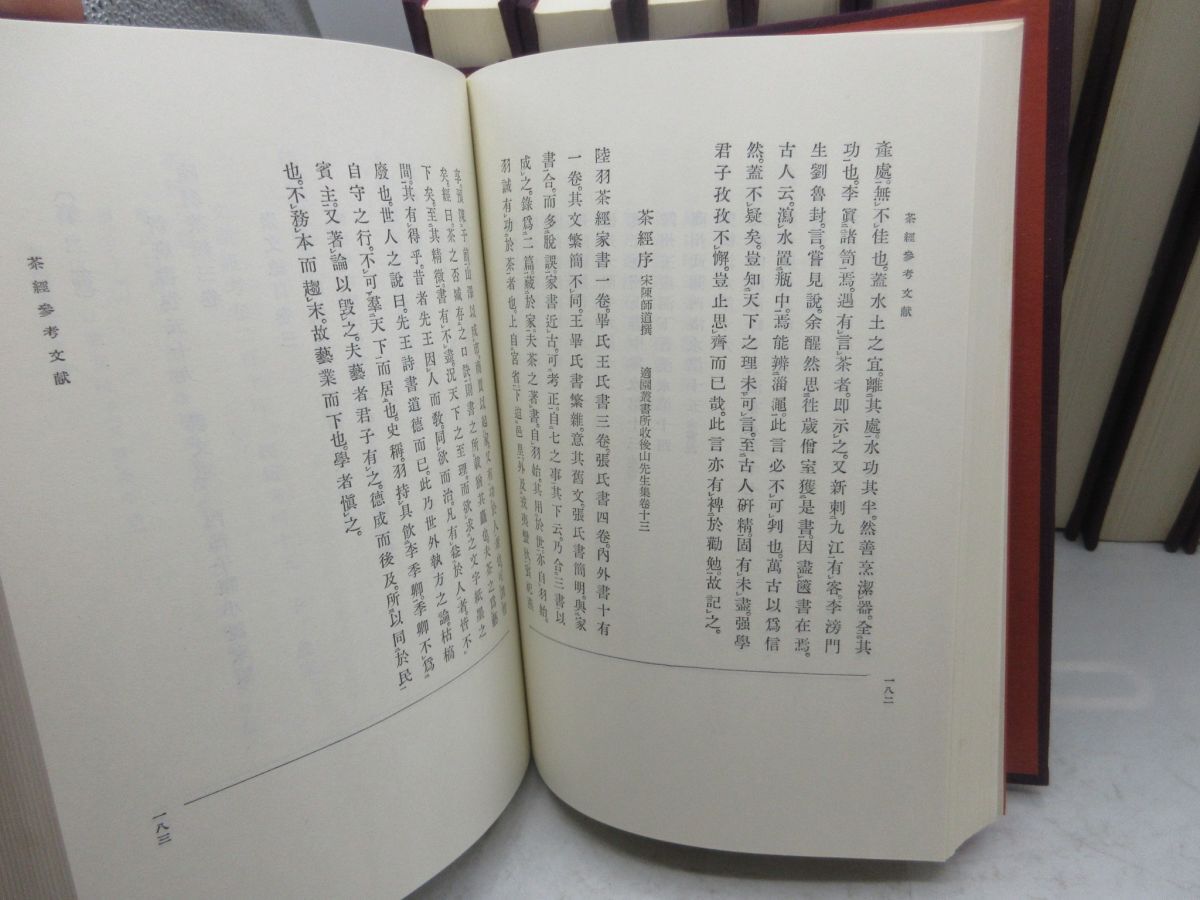 茶經參考文献
產處。無不佳也。蓋水土之宜。離其處。水功其半。然善烹潔器。全其
功也。李眞諸笥焉。遇有言茶者。即示之。又新刺九江。有客。李滂門
生劉魯封。言。嘗見說。余醒然思。往歲僧室獲是書。因盡篋書在焉。
古人云。瀉水置瓶中。焉能辨淄澠。此言必不可判也。萬古以爲信
然。蓋不疑矣。豈知天下之理未可言。至古人研精。固有未盡。强學
君子孜孜不懈。豈止思齊而已哉。此言亦有裨於勸勉。故記之。
茶經序 宋陳師道撰 適園叢書所收後山先生集卷十三
陸羽茶經家書一卷。畢氏王氏書三卷。張氏書四卷。內外書十有
一卷。其文繁簡不同。王畢氏書繁雜。意其舊文。張氏書簡明。與家
書合。而多脫誤。家書近古。可考正。自七之事其下云。乃合三書以
成之。錄爲二篇。藏於家。夫茶之著書。自羽始。其用於世。亦自羽始。
羽誠有功於茶者也。上自宮省。下逮邑里。外及
一八二
矣。經曰。茶之否臧。存之口訣。則書之所
下矣。至其精微。書有不盡。況天下之至理。而欲求之文字紙墨之
間。其有得乎。昔者先王因人而敎。同欲而治。凡有益於人者。皆不
廢也。世人之說曰。先王詩書道德而已。此乃世外執方之論。枯槁
自守之行。不可羣天下而居也。史稱。羽持具飮李季卿。季卿不爲
賓主。又著論以毀之。夫藝者君子有之。德成而後及。所以同於民
也。不務本而趨末。故藝業而下也。學者愼之。
茶經參考文献
一八三